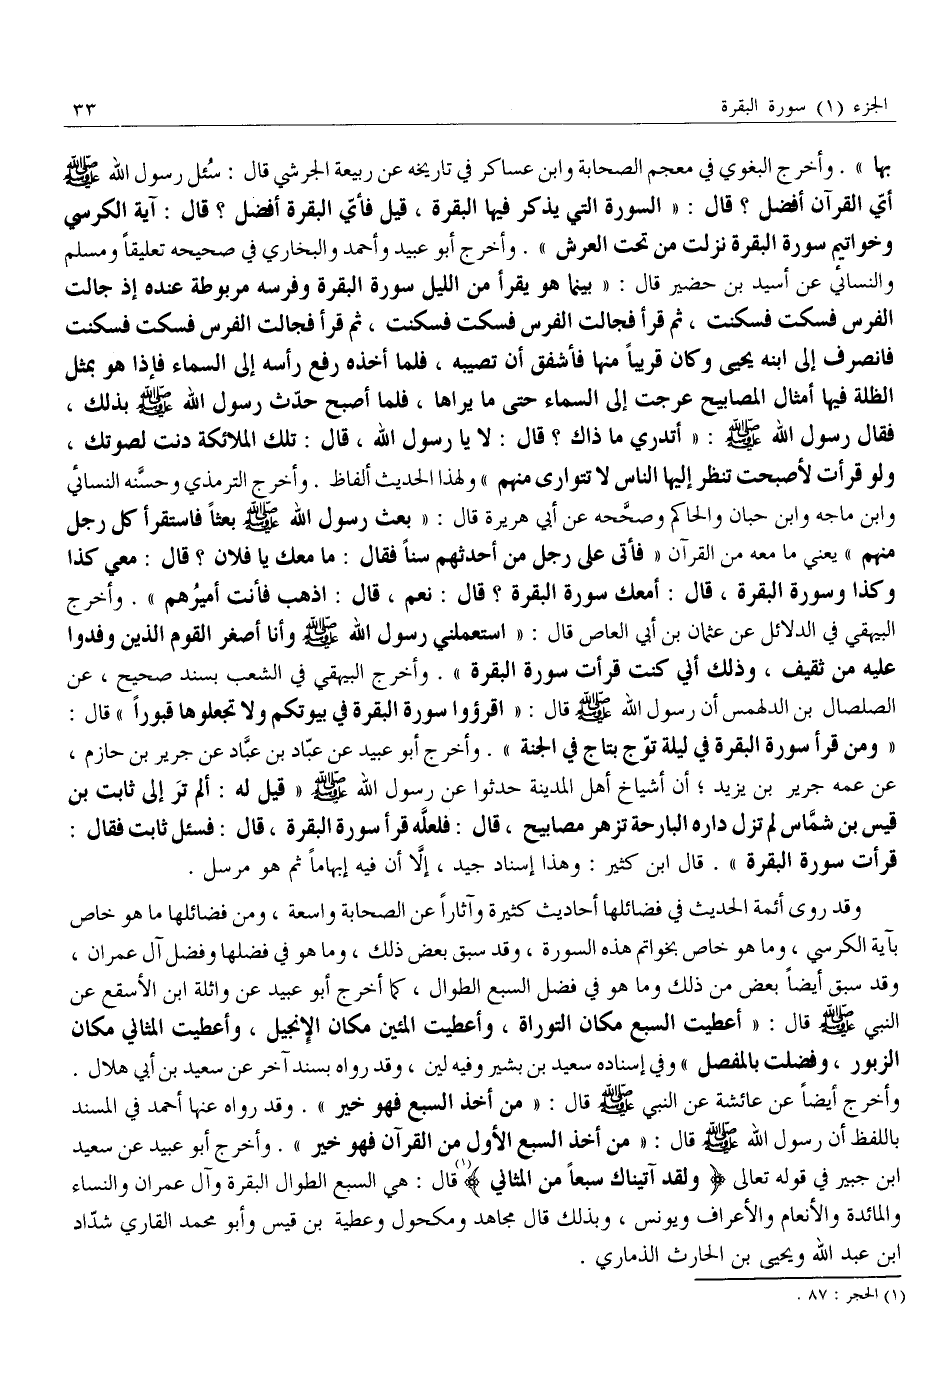 الجزء (١) سورة البقرة ٣٣
بها » . وأخرج البغوي في معجم الصحابة وابن عساكر في تاريخه عن ربيعة الجرشي قال : سُئل رسول الله ﷺ
أيّ القرآن أفضل ؟ قال : « السورة التي يذكر فيها البقرة ، قيل فأيّ البقرة أفضل ؟ قال : آية الكرسي
وخواتيم سورة البقرة نزلت من تحت العرش » . وأخرج أبو عبيد وأحمد والبخاري في صحيحه تعليقاً ومسلم
والنسائي عن أسيد بن حضير قال : « بينما هو يقرأ من الليل سورة البقرة وفرسه مربوطة عنده إذ جالت
الفرس فسكت فسكنت ، ثم قرأ فجالت الفرس فسكت فسكنت ، ثم قرأ فجالت الفرس فسكت فسكنت
فانصرف إلى ابنه يحيى وكان قريباً منها فأشفق أن تصيبه ، فلما أخذه رفع رأسه إلى السماء فإذا هو بمثل
الظلة فيها أمثال المصابيح عرجت إلى السماء حتى ما يراها ، فلما أصبح حدّث رسول الله ﷺ بذلك ،
فقال رسول الله ﷺ : « أتدري ما ذاك ؟ قال : لا يا رسول الله ، قال : تلك الملائكة دنت لصوتك ،
ولو قرأت لأصبحت تنظر إليها الناس لا تتوارى منهم » ولهذا الحديث ألفاظ . وأخرج الترمذي وحسَّنه النسائي
وابن ماجه وابن حبان والحاكم وصحَّحه عن أبي هريرة قال : « بعث رسول الله ﷺ بعثاً فاستقرأ كل رجل
منهم » يعني ما معه من القرآن « فأتى على رجل من أحدثهم سناً فقال : ما معك يا فلان ؟ قال : معي كذا
وكذا وسورة البقرة ، قال : أمعك سورة البقرة ؟ قال : نعم ، قال : اذهب فأنت أميرُهم » . وأخرج
البيهقي في الدلائل عن عثمان بن أبي العاص قال : « استعملني رسول الله ﷺ وأنا أصغر القوم الذين وفدوا
عليه من ثقيف ، وذلك أني كنت قرأت سورة البقرة » . وأخرج البيهقي في الشعب بسند صحيح ، عن
الصلصال بن الدلهمس أن رسول الله ﷺ قال : « اقرؤوا سورة البقرة في بيوتكم ولا تجعلوها قبوراً » قال :
« ومن قرأ سورة البقرة في ليلة توّج بتاج في الجنة » . وأخرج أبو عبيد عن عبّاد بن عبَّاد عن جرير بن حازم ،
عن عمه جرير بن يزيد ؛ أن أشياخ أهل المدينة حدثوا عن رسول الله ﷺ « قيل له : ألم ترَ إلى ثابت بن
قيس بن شمَّاس لم تزل داره البارحة تزهر مصابيح ، قال : فلعلَّه قرأ سورة البقرة ، قال : فسئل ثابت فقال :
قرأت سورة البقرة » . قال ابن كثير : وهذا إسناد جيد ، إلَّا أن فيه إبهاماً ثم هو مرسل .
وقد روى أئمة الحديث في فضائلها أحاديث كثيرة وآثاراً عن الصحابة واسعة ، ومن فضائلها ما هو خاص
بآية الكرسي ، وما هو خاص بخواتم هذه السورة ، وقد سبق بعض ذلك ، وما هو في فضلها وفضل آل عمران ،
وقد سبق أيضاً بعض من ذلك وما هو في فضل السبع الطوال ، كما أخرج أبو عبيد عن واثلة ابن الأسقع عن
النبي ﷺ قال : « أعطيت السبع مكان التوراة ، وأعطيت المئين مكان الإنجيل ، وأعطيت المثاني مكان
الزبور ، وفضلت بالمفصل » وفي إسناده سعيد بن بشير وفيه لين ، وقد رواه بسند آخر عن سعيد بن أبي هلال .
وأخرج أيضاً عن عائشة عن النبي ﷺ قال : « من أخذ السبع فهو خير » . وقد رواه عنها أحمد في المسند
باللفظ أن رسول الله ﷺ قال : « من أخذ السبع الأول من القرآن فهو خير » . وأخرج أبو عبيد عن سعيد
ابن جبير في قوله تعالى ﴿ ولقد آتيناك سبعاً من المثاني ﴾(١) قال : هي السبع الطوال البقرة وآل عمران والنساء
والمائدة والأنعام والأعراف ويونس ، وبذلك قال مجاهد ومكحول وعطية بن قيس وأبو محمد القاري شدّاد
ابن عبد الله ويحيى بن الحارث الذماري .
(١) الحجر : ٨٧ .